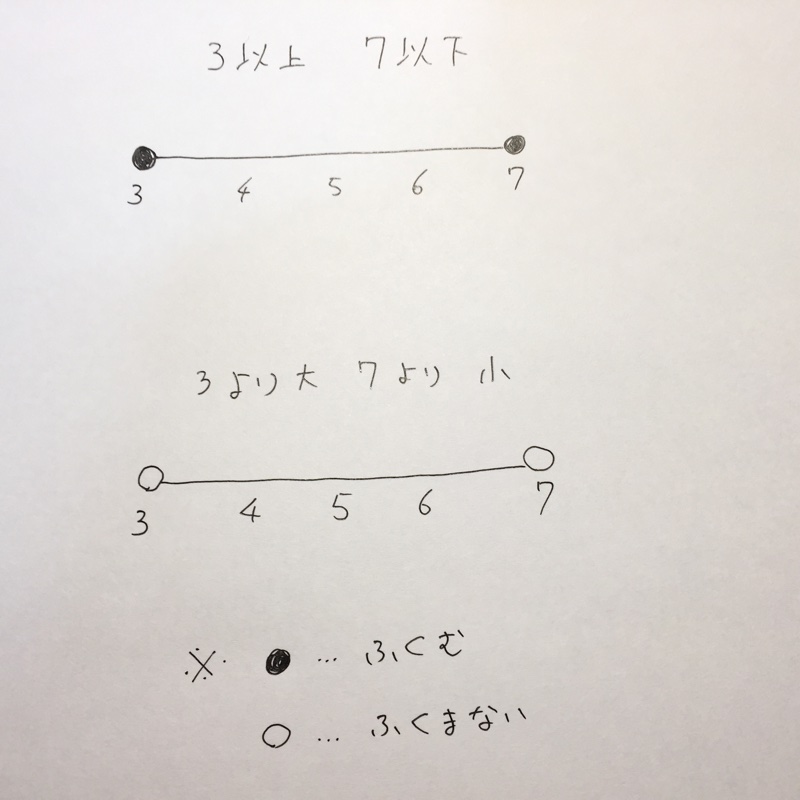 3以上 7以下
3 4 5 6 7
3より大 7より小
3 4 5 6 7
※ ● … ふくむ
○ … ふくまない